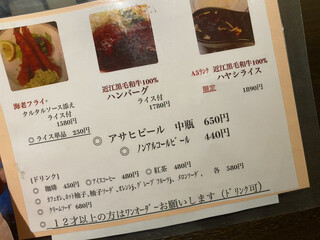 海老フライ
タルタルソース添え
ライス付
1580円
◎ライス単品 250円
近江黒毛和牛100%
ハンバーグ
ライス付
1780円
A5ランク 近江黒毛和牛100%
ハヤシライス
限定 1890円
◎ アサヒビール 中瓶 650円
◎ ノンアルコールビール 440円
【ドリンク】
◎ 珈琲 450円 ◎アイスコーヒー 480円 ◎ 紅茶 480円
◎ カフェオレ、ホット柚子、柚子ソーダ、オレンジジュース、グレープフルーツジュース、メロンソーダ、 各 580円
◎ クリームソーダ 680円
◎ 12才以上の方はワンオーダーお願いします(ドリンク可)